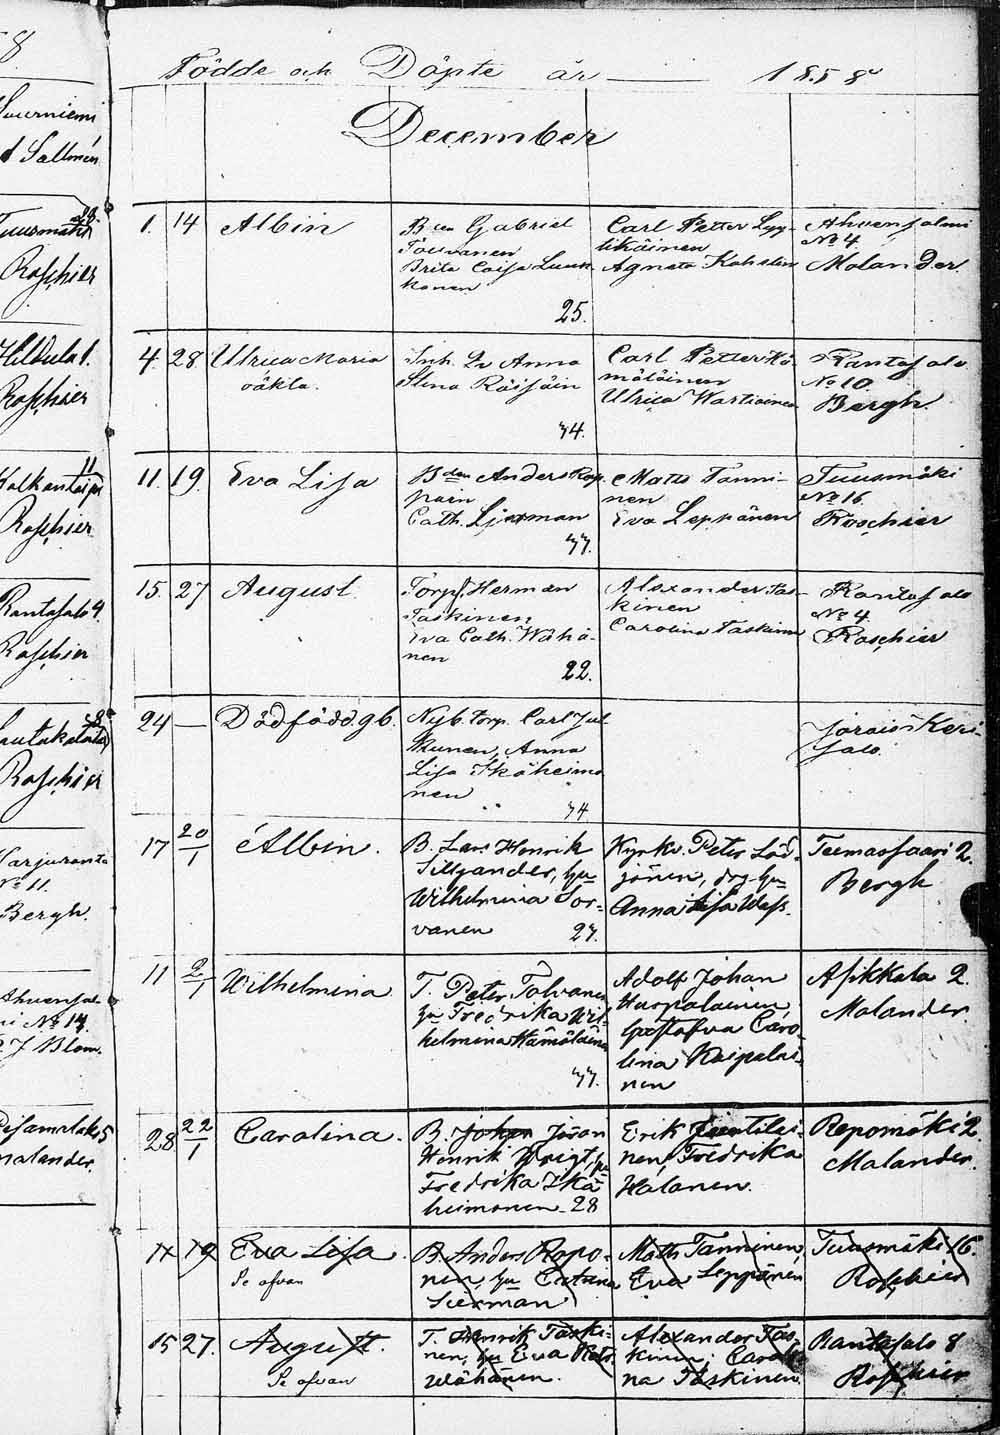 8
Födde och Döpte år — 1858
December
Suurniemi
d Sallmén
Tuusmäki
Roschier
Hildula 1.
Roschier
11
Roschier
Rantasalo 4.
Roschier
8
Roschier
Harjuranta
No 11.
Bergh.
Ahvensal-
mi No 14.
J Blom.
5
Malander.
1. 14 Albin
Bden Gabriel
Tolvanen
Brita Caisa Luuk-
konen
25.
Carl Petter Lyy-
tikäinen
Agneta Kohslen
Ahvensalmi
No 4.
Malander.
4. 28. Ulrica Maria
oäkta.
Inh. Dr Anna
Stina Räisäin
34.
Carl Petter Hä-
mäläinen
Ulrica Wartiainen
Rantasalo
No 10.
Bergh.
11. 19. Eva Lisa
Bden Anders Rop-
poin
Cath. Sjerman
37.
Matts Tanni-
nen
Eva Leppänen
Tuusmäki
No 16.
Roschier
15. 27 August.
Torp. Herman
Taskinen
Eva Cath. Wähä-
nen
22.
Alexander Tas-
kinen
Carolina Taskinen
Rantasalo
No 4.
Roschier
24 — Dödfödd gb.
Nyb. torp. Carl Jul
kunen, Anna
Lisa Ikäheimo
nen
34
Jorois Keri-
salo.
17 20/1 Albin.
B. Lars Henrik
Sillgander, hu
Wilhelmina Sor-
vanen 27.
Kyrkv. Peter Löd-
jönen, dess hu
Anna Lisa Wass.
Teemassaari 2.
Bergh
11 2/1 Wilhelmina.
T. Peter Tolvanen
hu Fredrika Wil-
helmina Hämäläinen
37.
Adolf Johan
Hurpalainen,
Gustafva Caro-
lina Kaipalai-
nen
Asikkala 2.
Malander.
28 22/1 Carolina.
B. Johan Jöran
Henrik Weigt, hu
Fredrika Ikä
heimonen. 28
Erik Jantilai-
nen, Fredrika
Halanen.
Repomäki 2.
Malander.
11 19 Eva Lisa.
Se ofvan
B. Anders Ropo-
nen, hu Catrina
Sierman
Matts Tanninen,
Eva Leppänen
Tuusmäki 16.
Roschier
15 27. August.
Se ofvan
T. Henrik Taski-
nen, hu Eva Kats
Wähänen.
Alexander Tas-
kinen, Caroli-
na Taskinen.
Rantasalo 8
Roschier